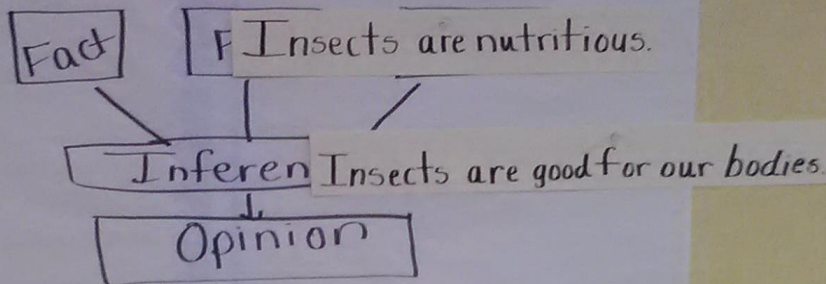 Fact
F Insects are nutritious.
Inferen Insects are good for our bodies.
Opinion